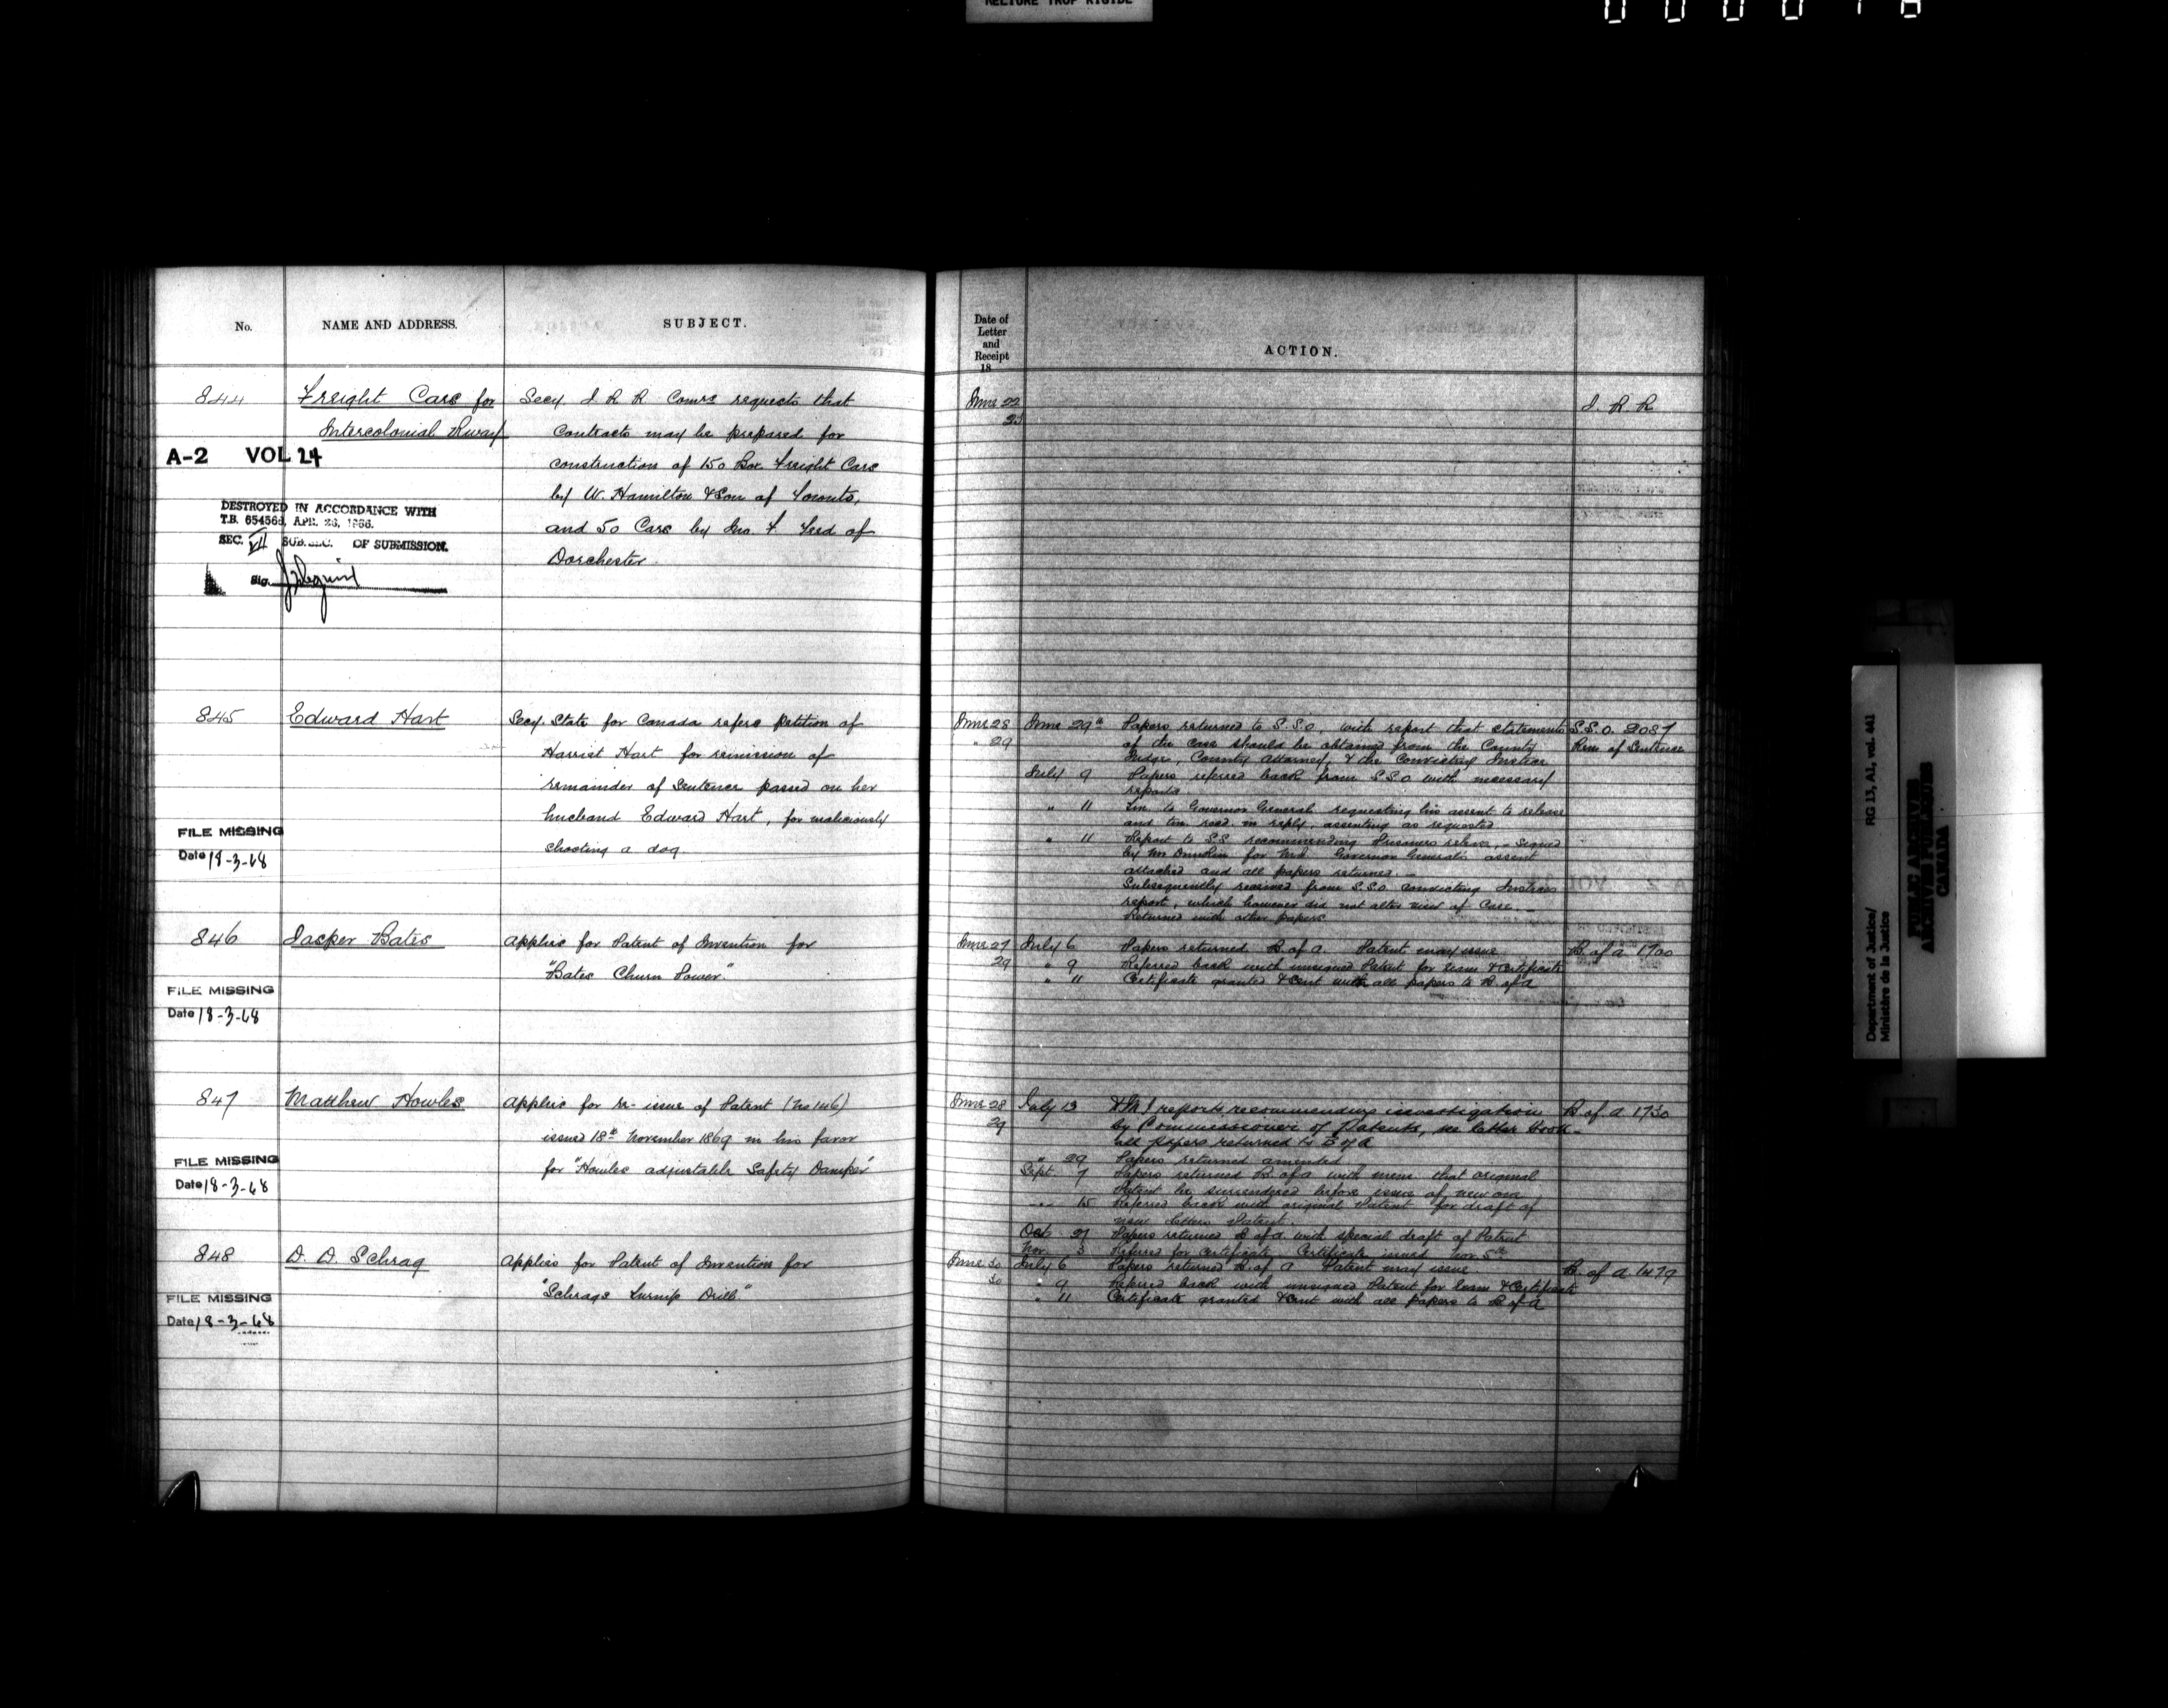 RELIURE TROP RIGIDE
No.
NAME AND ADDRESS.
SUBJECT.
844
Freight Cars for
Intercolonial Rway
A-2 VOL 24
DESTROYED IN ACCORDANCE WITH
T.B. 654566, APR. 26, 1966.
SEC. VII SUB. SEC. OF SUBMISSION.
Sig.
Secy. I R R Comrs requests that
Contracts may be prepared for
construction of 150 Box Freight Cars
by W. Hamilton & Son of Toronto,
and 50 Cars by Jno. F. of
Dorchester.
845
Edward Hart
Secy. State for Canada refers petition of
Harriet Hart for remission of
remainder of Sentence passed on her
husband Edward Hart, for maliciously
shooting a dog.
FILE MISSING
Date 18-3-68
846
Jasper Bates
Applies for Patent of Invention for
"Bates Churn Power."
FILE MISSING
Date 18-3-68
847
Matthew Howles
Applies for re-issue of Patent (No 146)
issued 18th November 1869 in his favor
for "Howles adjustable Safety Damper"
FILE MISSING
Date 18-3-68
848
D. D. Schrag
Applies for Patent of Invention for
"Schrags Turnip Drill."
FILE MISSING
Date 18-3-68
Date of
Letter
and
Receipt
18
ACTION.
June 22
I. R R
June 28 June 29th Papers returned to S.S.O. with report that statements S.S.O. 2087
" 29 of the case should be obtained from the County Rem of Sentence
Judge, County Attorney, & the Convicting Justice
July 9 Papers referred back from S.S.O with necessary
reports.
" 11 Tm. to Governor General requesting his assent to release
and tm. recd. in reply, assenting as requested
" 11 Report to S.S recommending Prisoners release, - Signed
by Mr for Governor General's assent
attached and all papers returned. -
Subsequently received from S.S.O. convicting Justices
report, which however did not alter view of Case. -
Returned with other papers
June 27 July 6 Papers returned B. of A. Patent may issue B. of A 1700
29 " 9 Referred back with unsigned Patent for Exam & Certificate
" 11 Certificate granted & sent with all papers to B. of A
June 28 July 13 reports recommending investigation B of A 1730
29 by Commissioner of Patents, see letter book -
all papers returned to B of A
" 29 Papers returned amended
Sept. 7 Papers returned B. of A with mem. that original
Patent be surrendered before issue of new one
" 15 Referred back with original Patent for draft of
new letters Patent.
Oct. 27 Papers returned B of A with special draft of Patent
Nov. 3 Referred for Certificate. Certificate issued Nov 5th
June 30 July 6 Papers returned B. of A Patent may issue B. of A 1479
30 " 9 Referred back with unsigned Patent for Exam & Certificate
" 11 Certificate granted & sent with all papers to B of A
Department of Justice/ RG 13, A1, vol. 441
Ministère de la Justice
PUBLIC ARCHIVES
ARCHIVES PUBLIQUES
CANADA